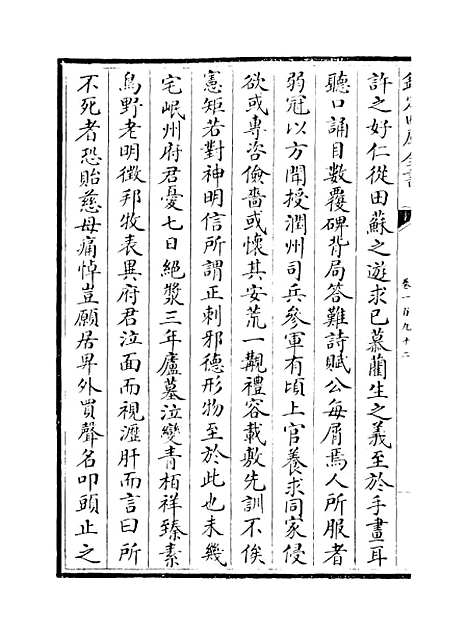 欽定四庫全書
卷一百九十二
許之好仁從田蘇之遊求已慕藺生之義至於手畫耳
聽口誦目數覆碑背局答難詩賦公每屑焉人所服者
弱冠以方聞授潤州司兵參軍有頃上官養求同家侵
欲或專咨儉嗇或懷其安荒一觀禮容載敷先訓不俟
憲矩若對神明信所謂正刺邪德形物至於此也未幾
宅岷州府君憂七日絕漿三年廬墓泣變青栢祥臻素
鳥野老明徵邦牧表異府君泣面而視瀝肝而言曰所
不死者恐貽慈母痛悼豈願居昇外買聲名叩頭止之